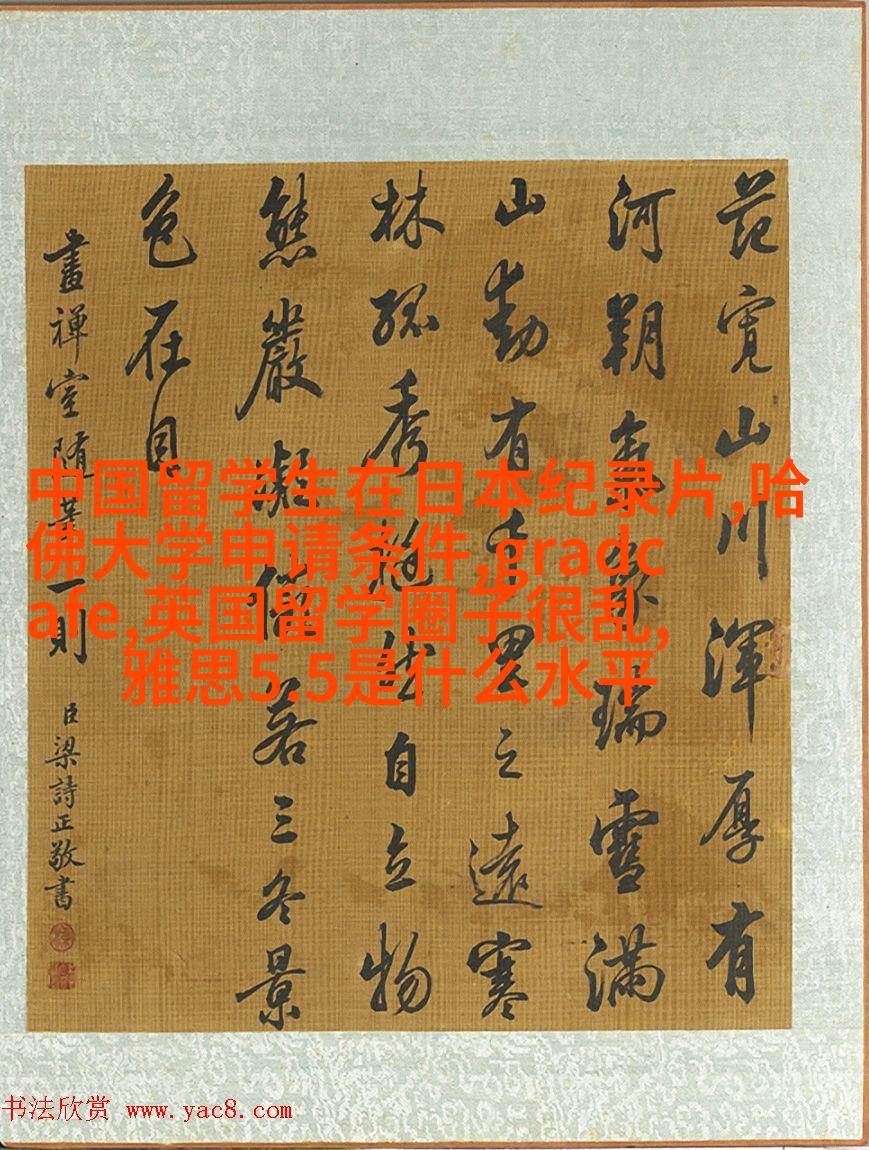 范寬山川渾厚有
河朔氣象瑞雪滿
山動有千里之遠寒
林孤秀挺然自立物
態嚴凝儼若三冬景
色在目
畫禪室隨筆一則 臣梁詩正敬書
中国留学生在日本纪录片,哈
佛大学申请条件,gradc
afe,英国留学圈子很乱,
雅思5.5是什么水平
书法欣赏 www.yac8.com